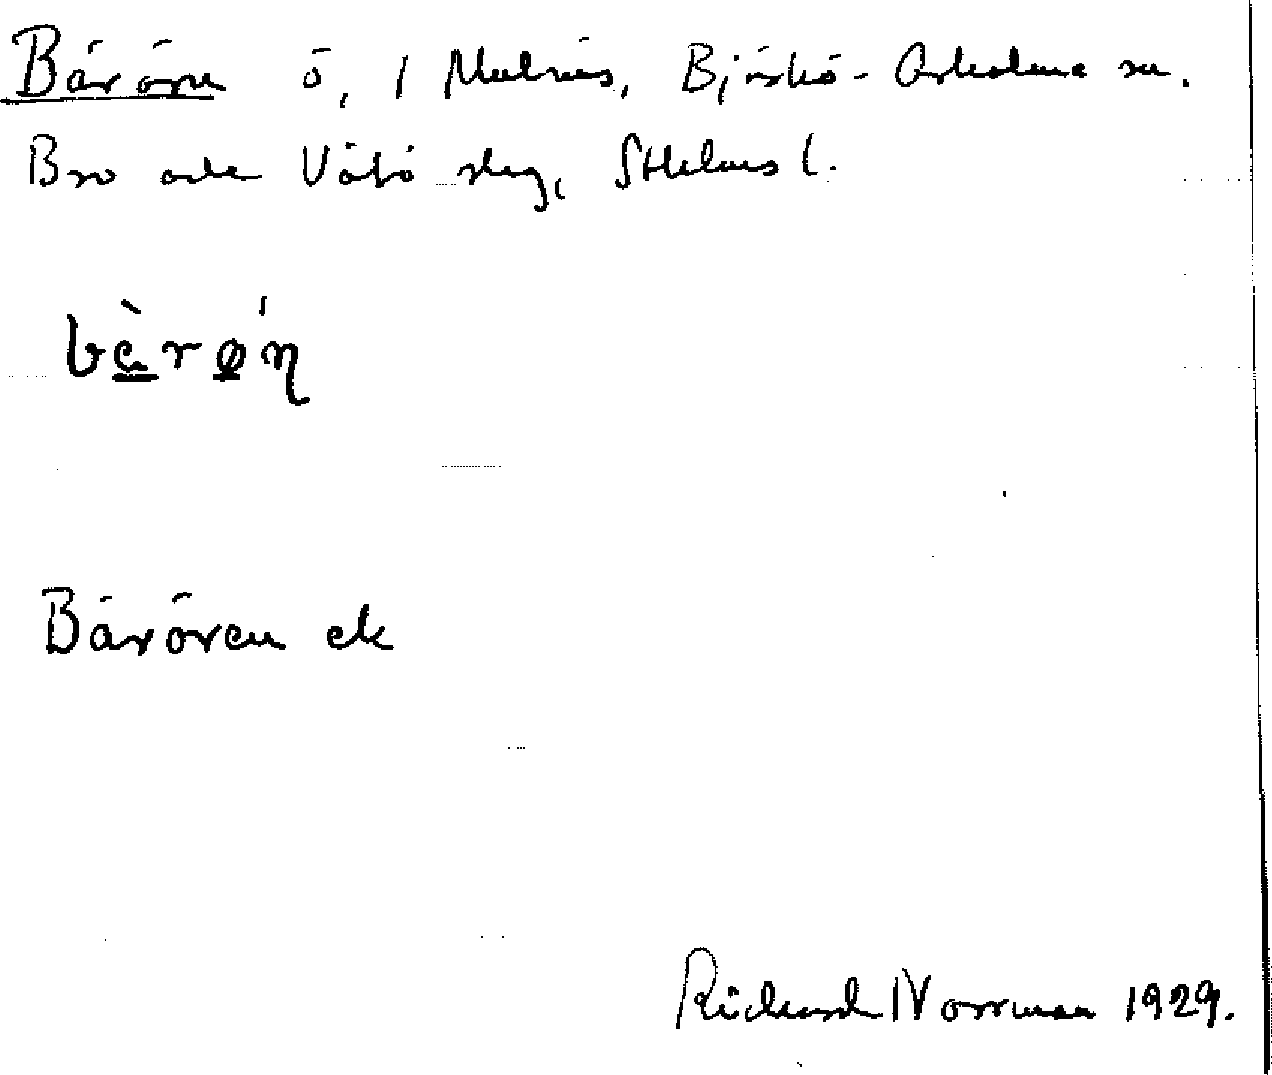 Bärörn ö, 1 Malnäs, Björkö-Arholma sn.
Bro och Vätö skg, Sthlms l.
bèrøn
Bärören ek
Richard Norrman 1929.